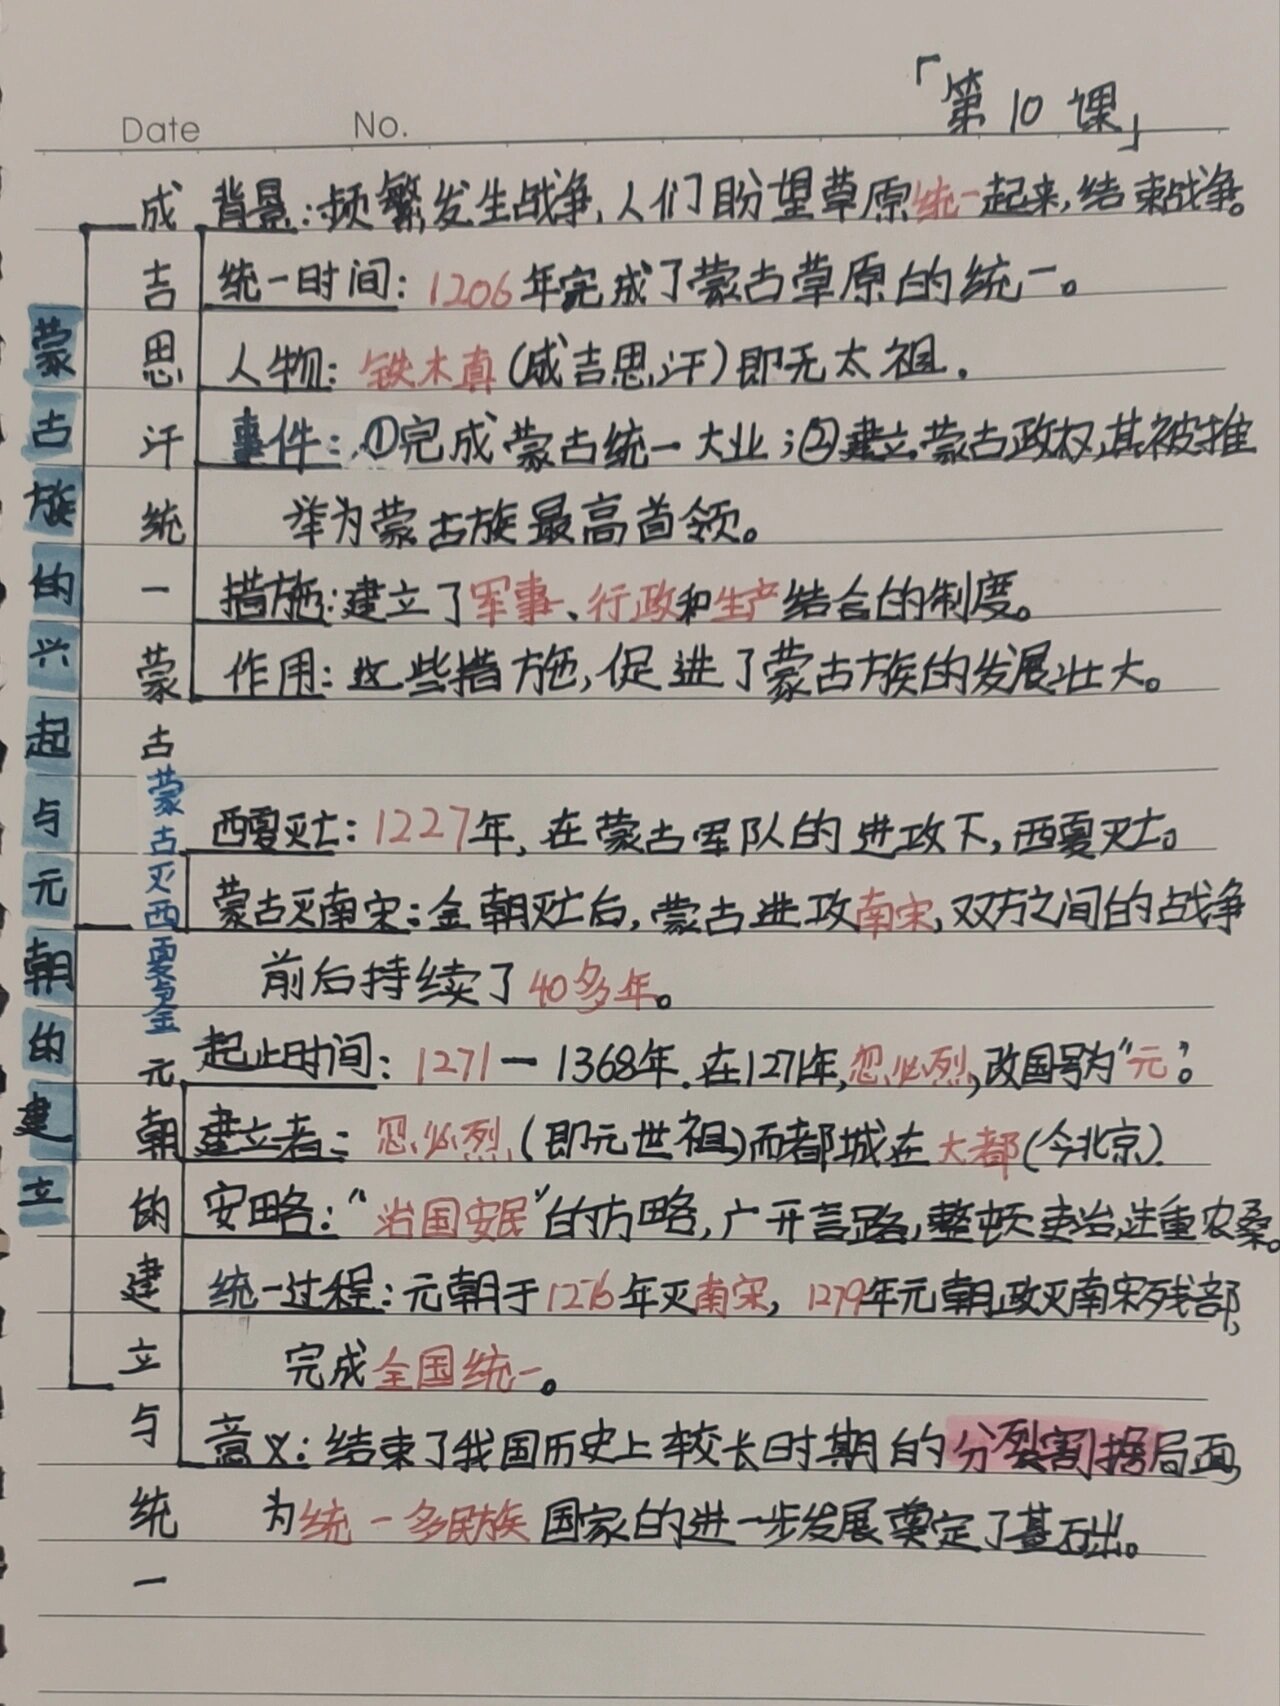 「第10课」
Date No.
蒙古族的兴起与元朝的建立
成吉思汗统一蒙古
背景:频繁发生战争,人们盼望草原统一起来,结束战争。
统一时间:1206年完成了蒙古草原的统一。
人物:铁木真(成吉思汗)即元太祖.
事件:①完成蒙古统一大业;②建立蒙古政权,其被推
举为蒙古族最高首领。
措施:建立了军事、行政和生产结合的制度。
作用:这些措施,促进了蒙古族的发展壮大。
蒙古灭西夏与金
西夏灭亡:1227年,在蒙古军队的进攻下,西夏灭亡。
蒙古灭南宋:金朝灭亡后,蒙古进攻南宋,双方之间的战争
前后持续了40多年。
元朝的建立与统一
起止时间:1271一1368年.在1271年,忽必烈,改国号为“元”。
建立者:忽必烈(即元世祖)而都城在大都(今北京).
安略:“治国安民”的方略,广开言路,整顿吏治,注重农桑。
统一过程:元朝于1276年灭南宋,1279年元朝政灭南宋残部,
完成全国统一。
意义:结束了我国历史上较长时期的分裂割据局面,
为统一多民族国家的进一步发展奠定了基础。